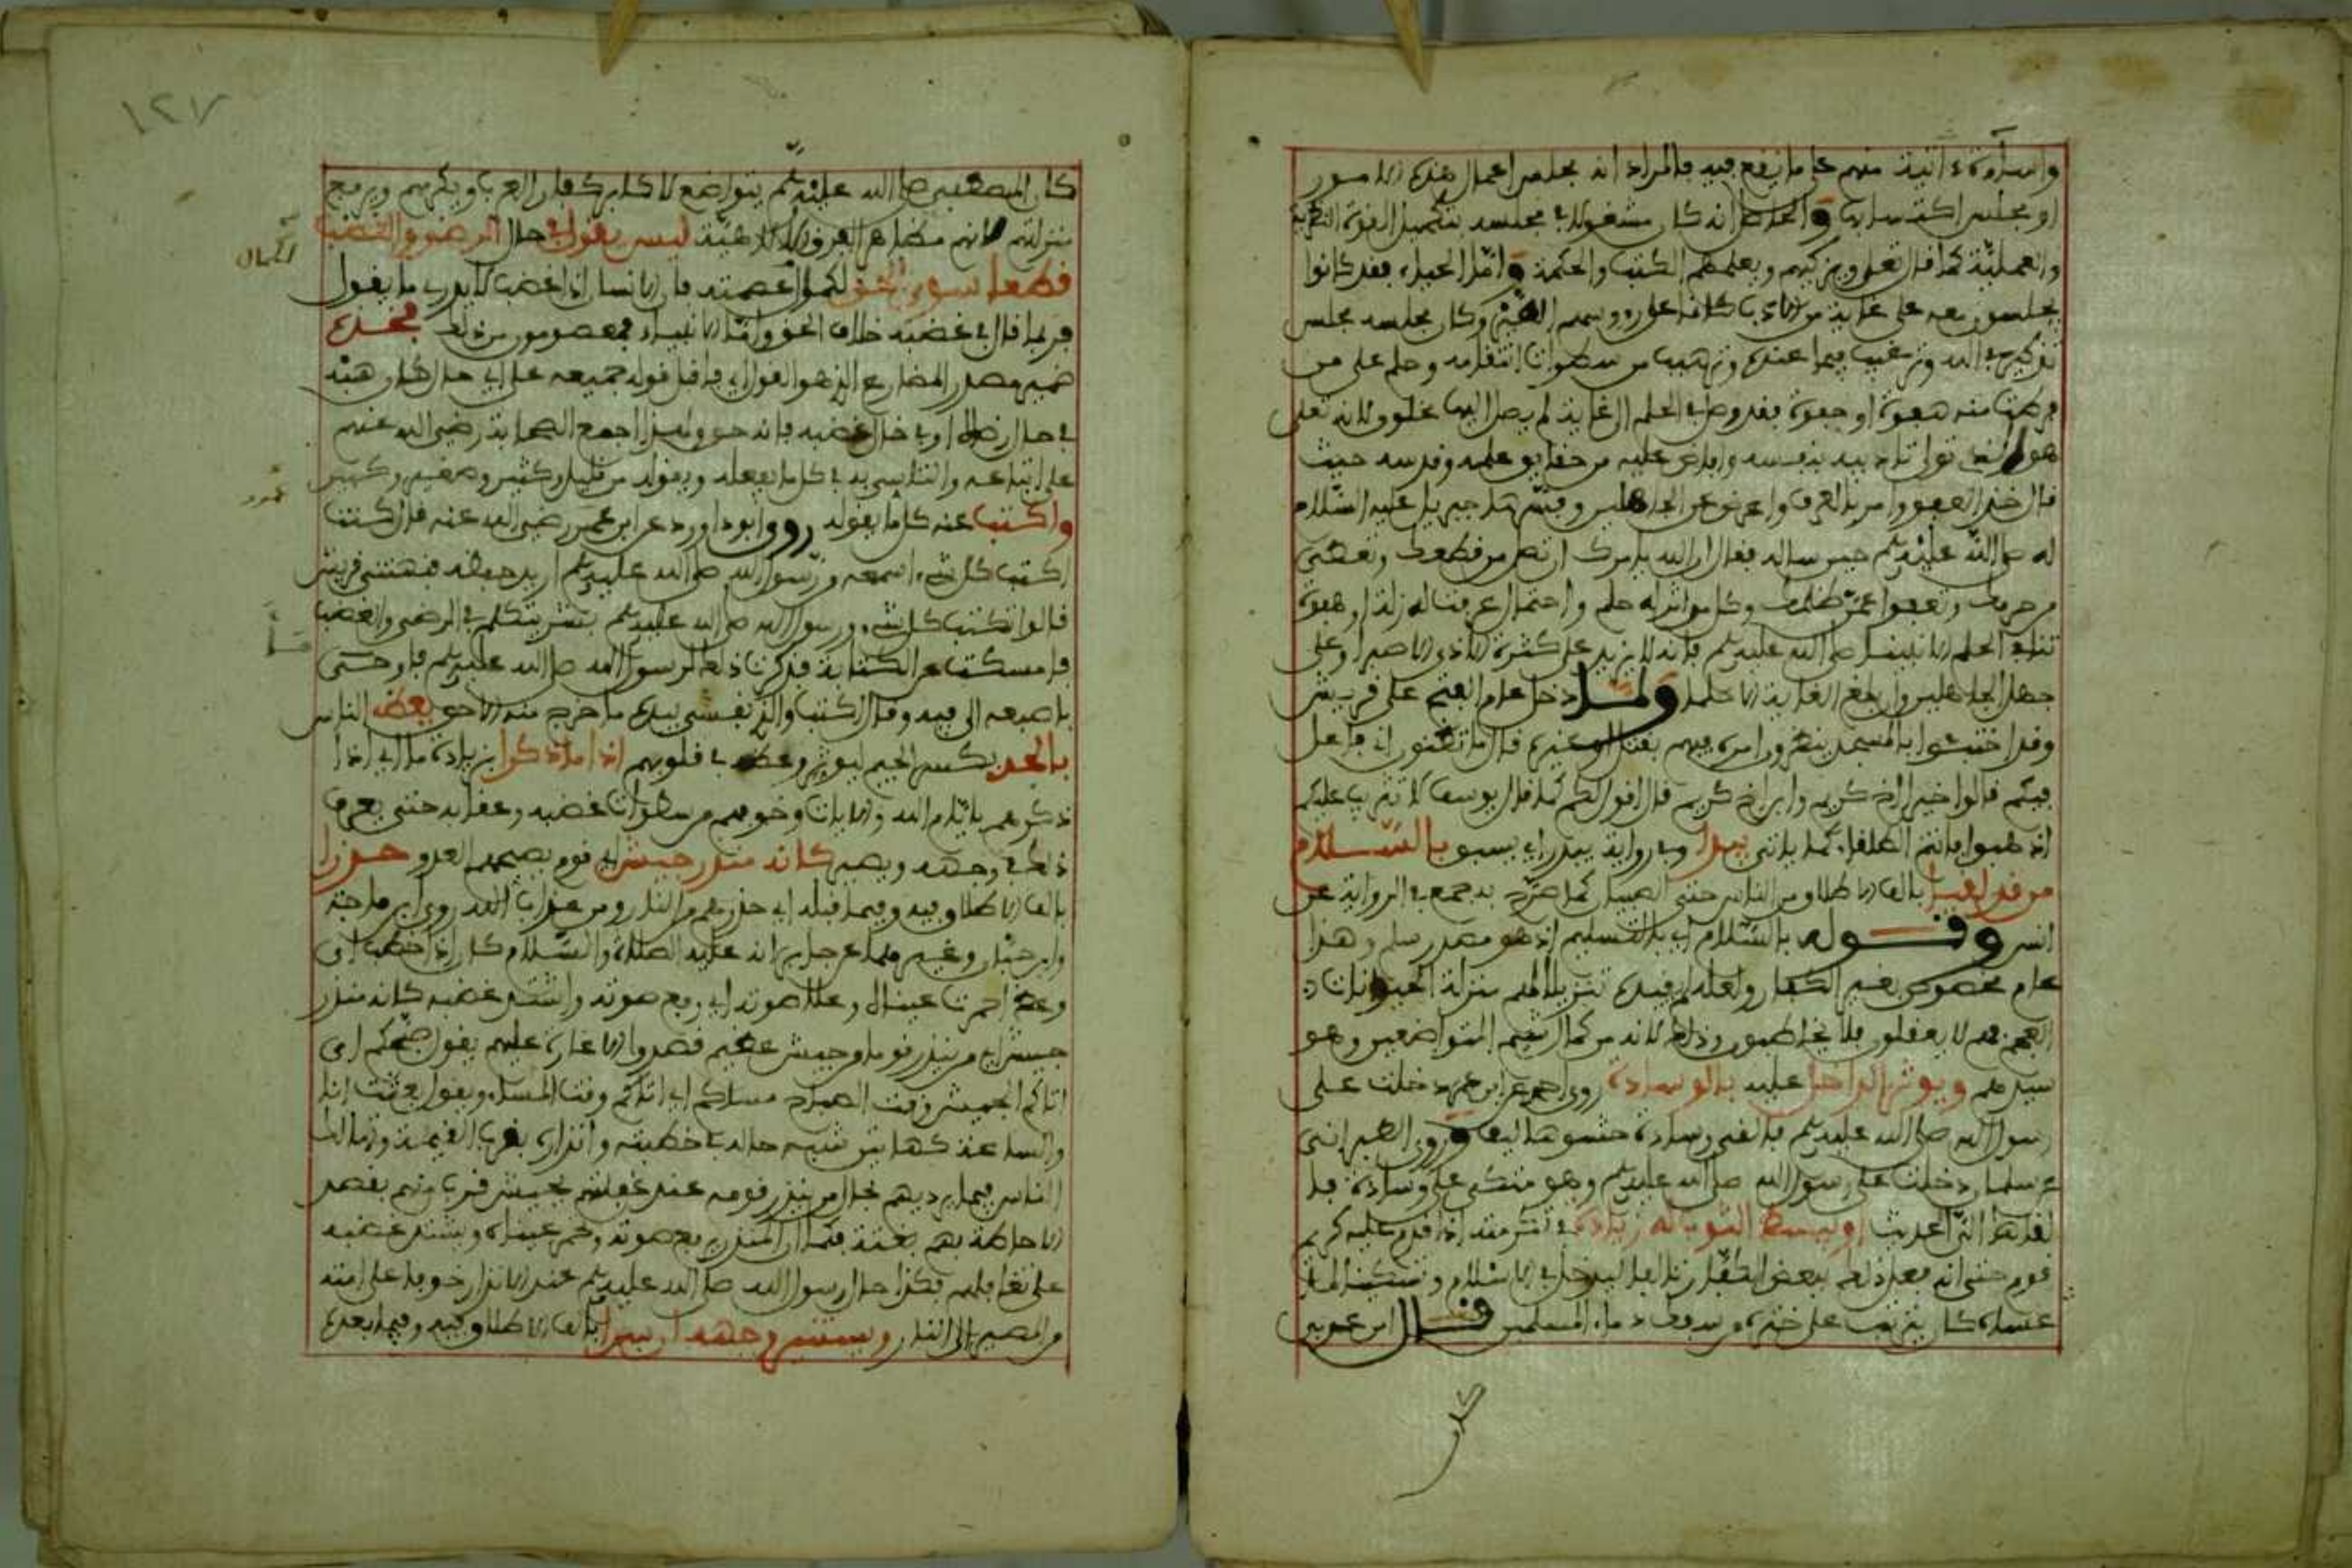 واساءة انية منهم على ما يقع فيه فالمراد انه مجلس اعمال هذه الامور
او مجلس اكتسابها والحاصل انه كان مشغولا في مجلسه بتكميل القوة النظرية
والعملية كما قال تعلى ويزكيهم ويعلمهم الكتب والحكمة واما الحياء فقد كانوا
يجلسون معه على غاية من الادب كانما على رءوسهم الطير وكان مجلسه مجلس
تذكير بالله وترغيب فيما عنده وترهيب من سطوات انتقامه وحلم على من
فرطت منه هفوة او جفوة فقد وصل في الحلم الى غاية لم يصل اليها مخلوق لانه تعلى
هو الذي تولى تاديبه بنفسه وافرغ عليه من حقايق علمه وقدسه حيث
قال خذ العفو وامر بالعرف واعرض عن الجاهلين وفسرها جبريل عليه السلام
له صلى الله عليه وسلم حين ساله فقال ان الله يامرك ان تصل من قطعك وتعطي
من حرمك وتعفو عمن ظلمك وكل مواتر له حلم واحتمال عرفت له زلة او هفوة
تنافي الحلم الا نبينا صلى الله عليه وسلم فانه لا يزيد على كثرة الاذى الا صبرا وعلى
جهل الجاهلين وبلغ الغاية الا حلما ولما دخل عام الفتح على قريش
وقد اجتمعوا بالمسجد ينتظرون امره فيهم بقتل او غيره قال ما تظنون اني فاعل
فيكم قالوا خيرا اخ كريم وابن اخ كريم قال اقول لكم كما قال يوسف لا تثريب عليكم
اذهبوا فانتم الطلقاء كما ياتي يبدا وفي رواية يبدر اي يسبق بالسلام
من قد لقيا بالف الاطلاق من الناس حتى الصبيان كما صرح به جمع في الرواية عن
انس وقوله بالسلام اي بالتسليم اذ هو مصدر سلم وهذا
عام مخصوص بغير الكفار ولعله لم يقيده تنزيلا لهم منزلة الحيوانات
العجم فهم لا يعقلون فلا يخاطبون وذلك لانه من كمال شيم المتواضعين وهو
سيدهم ويوثر الداخل عليه بالوسادة روى احمد عن ابن عمر دخلت على
رسول الله صلى الله عليه وسلم فالقى وسادة حشوها ليف وروى الطبراني
عن سلمان دخلت على رسول الله صلى الله عليه وسلم وهو متكئ على وسادة فا
لقاها الي الحديث او يبسط الثوب له زيادة في تكرمته اذا قدم عليه كريم
قوم حتى انه فعل ذلك ببعض الكفار تالفا ليدخل في الاسلام وتسكينا لما
عساه كان يترتب على خبره من سفك دماء المسلمين قال ابن عربي
كان
١٢٧
كان المصطفى صلى الله عليه وسلم يتواضع لاكابر كفار العرب ويكرمهم ويرفع
منزلتهم لانهم مظاهر العزة الالاهية ليس يقول في حال الرضى والغضب
الكمال
قطعا سوى الحق لكمال عصمته فان الانسان اذا غضب لا يدري ما يقول
فربما قال في غضبه خلاف الحق واما الانبياء فمعصومون من ذلك فخذه
ضمير مصدر المضارع الذي هو القول اي فاقبل قوله جميعه على اي حال كان هبه
في حال رضاه او في حال غضبه فانه حق ولهذا اجمع الصحابة رضي الله عنهم
على اتباعه والتاسي به في كل ما يفعله ويقوله من قليل وكثير وصغير وكبير
واكتب عنه كل ما يقوله روى ابو داوود عن ابن عمر رضي الله عنه قال كنت
اكتب كل شيء اسمعه من رسول الله صلى الله عليه وسلم اريد حفظه فنهتني قريش
قالوا تكتب كل شيء ورسول الله صلى الله عليه وسلم بشر يتكلم في الرضى والغضب
فامسكت عن الكتابة فذكرت ذلك لرسول الله صلى الله عليه وسلم فاوحى
باصبعه الى فيه وقال اكتب والذي نفسي بيده ما خرج منه الا حق يعظ الناس
بالجد بكسر الجيم ليوثر وعظه في قلوبهم اذا ما ذكرا بزيادة ما اي اذا
ذكرهم بايام الله والايات وخوفهم من سطوات غضبه وعقابه حتى يعرف
ذلك في وجهه ويصير كانه منذر جيش اي قوم يصبحهم العدو حذرا
بالف الاطلاق فيه وفيما قبله اي حذرهم من النار ومن عذاب الله روى ابن ماجة
وابن حبان وغيرهما عن جابر انه عليه الصلاة والسلام كان اذا خطب اي
وعظ احمرت عيناه وعلا صوته اي رفع صوته واشتد غضبه كانه منذر
جيش اي من ينذر قوما من جيش عظيم قصدوا الاغارة عليهم يقول صبحكم اي
اتاكم الجيش وقت الصباح مساكم اي اتاكم وقت المساء ويقول بعثت انا
والساعة كهاتين شبه حاله في خطبته وانذاره بقرب القيمة وتهالك
الناس فيما يرديهم بحال من ينذر قومه عند غفلتهم بجيش قريب منهم يقصد
الاحاطة بهم بغتة فكما ان المنذر يرفع صوته وتحمر عيناه ويشتد غضبه
على تغافلهم فكذا حال رسول الله صلى الله عليه وسلم عند الانذار خوفا على امته
من المصير الى النار ويستنير وجهه ان سرا بالف الاطلاق فيه وفيما بعده